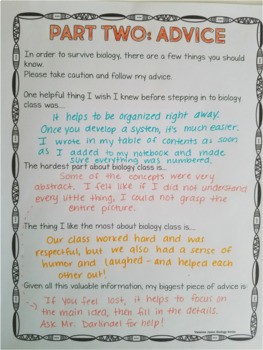 PART TWO: ADVICE
In order to survive biology, there are a few things you should
know.
Please take caution and follow my advice.
One helpful thing I wish I knew before stepping in to biology
class was....
It helps to be organized right away.
Once you develop a system, it's much easier.
I wrote in my table of contents as soon
as I added to my notebook and made
sure everything was numbered.
The hardest part about biology class is....
Some of the concepts were very
abstract. I felt like if I did not understand
every little thing, I could not grasp the
entire picture.
The thing I like the most about biology class is....
Our class worked hard and was
respectful, but we also had a sense of
humor and laughed - and helped each
other out!
Given all this valuable information, my biggest piece of advice is
:-) If you feel lost, it helps to focus on
the main idea, then fill in the details.
Ask Mr. for help!